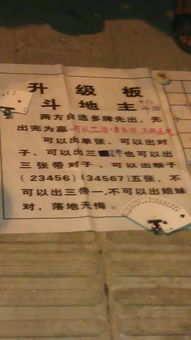 升级板
斗地主
两方自选多牌先出，先
出完为赢
可以出单张、可以出对
子、可以出三 也可以出
三张带对子、可以出顺子
(23456)(34567)五张，不
可以出三带一,不可以出姐妹
对，落地无悔。